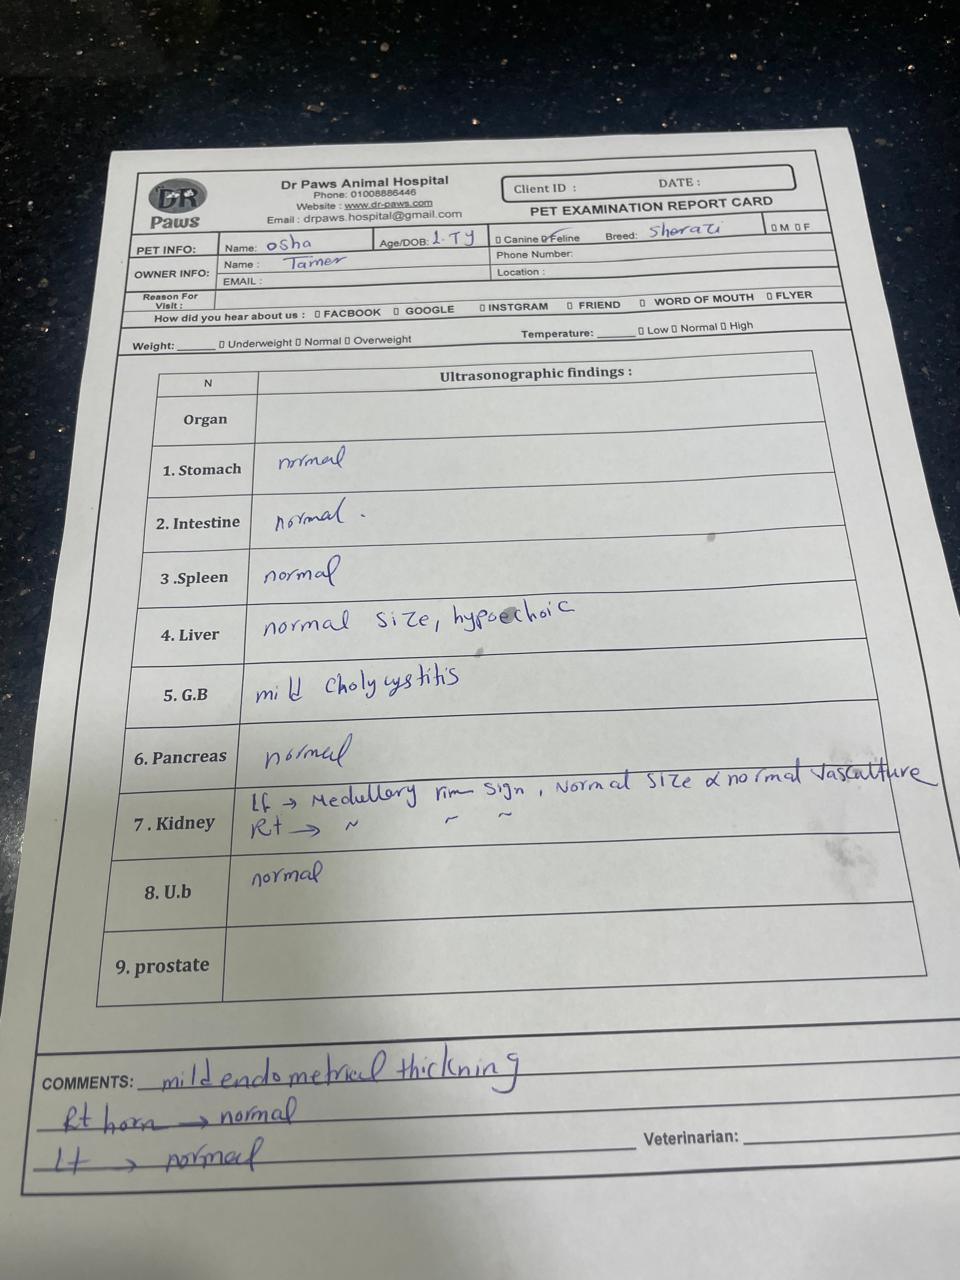 DR
Paws
Dr Paws Animal Hospital
Phone: 01008886446
Website : www.dr-paws.com
Email : drpaws.hospital@gmail.com
Client ID : DATE :
PET EXAMINATION REPORT CARD
PET INFO: Name: osha Age/DOB: 1.TY Canine Feline Breed: Sherazi M F
OWNER INFO: Name : Tamer Phone Number:
EMAIL : Location :
Reason For Visit :
How did you hear about us : FACBOOK GOOGLE INSTGRAM FRIEND WORD OF MOUTH FLYER
Weight: Underweight Normal Overweight Temperature: Low Normal High
N Ultrasonographic findings :
Organ
1. Stomach normal
2. Intestine normal .
3 .Spleen normal
4. Liver normal size, hypoechoic
5. G.B mild cholycystitis
6. Pancreas normal
7 . Kidney Lf → Medullary rim sign , Normal size & normal vasculture
Rt → ~ ~ ~
8. U.b normal
9. prostate
COMMENTS: mild endometrical thickning
Rt horn → normal
Lt → normal
Veterinarian: